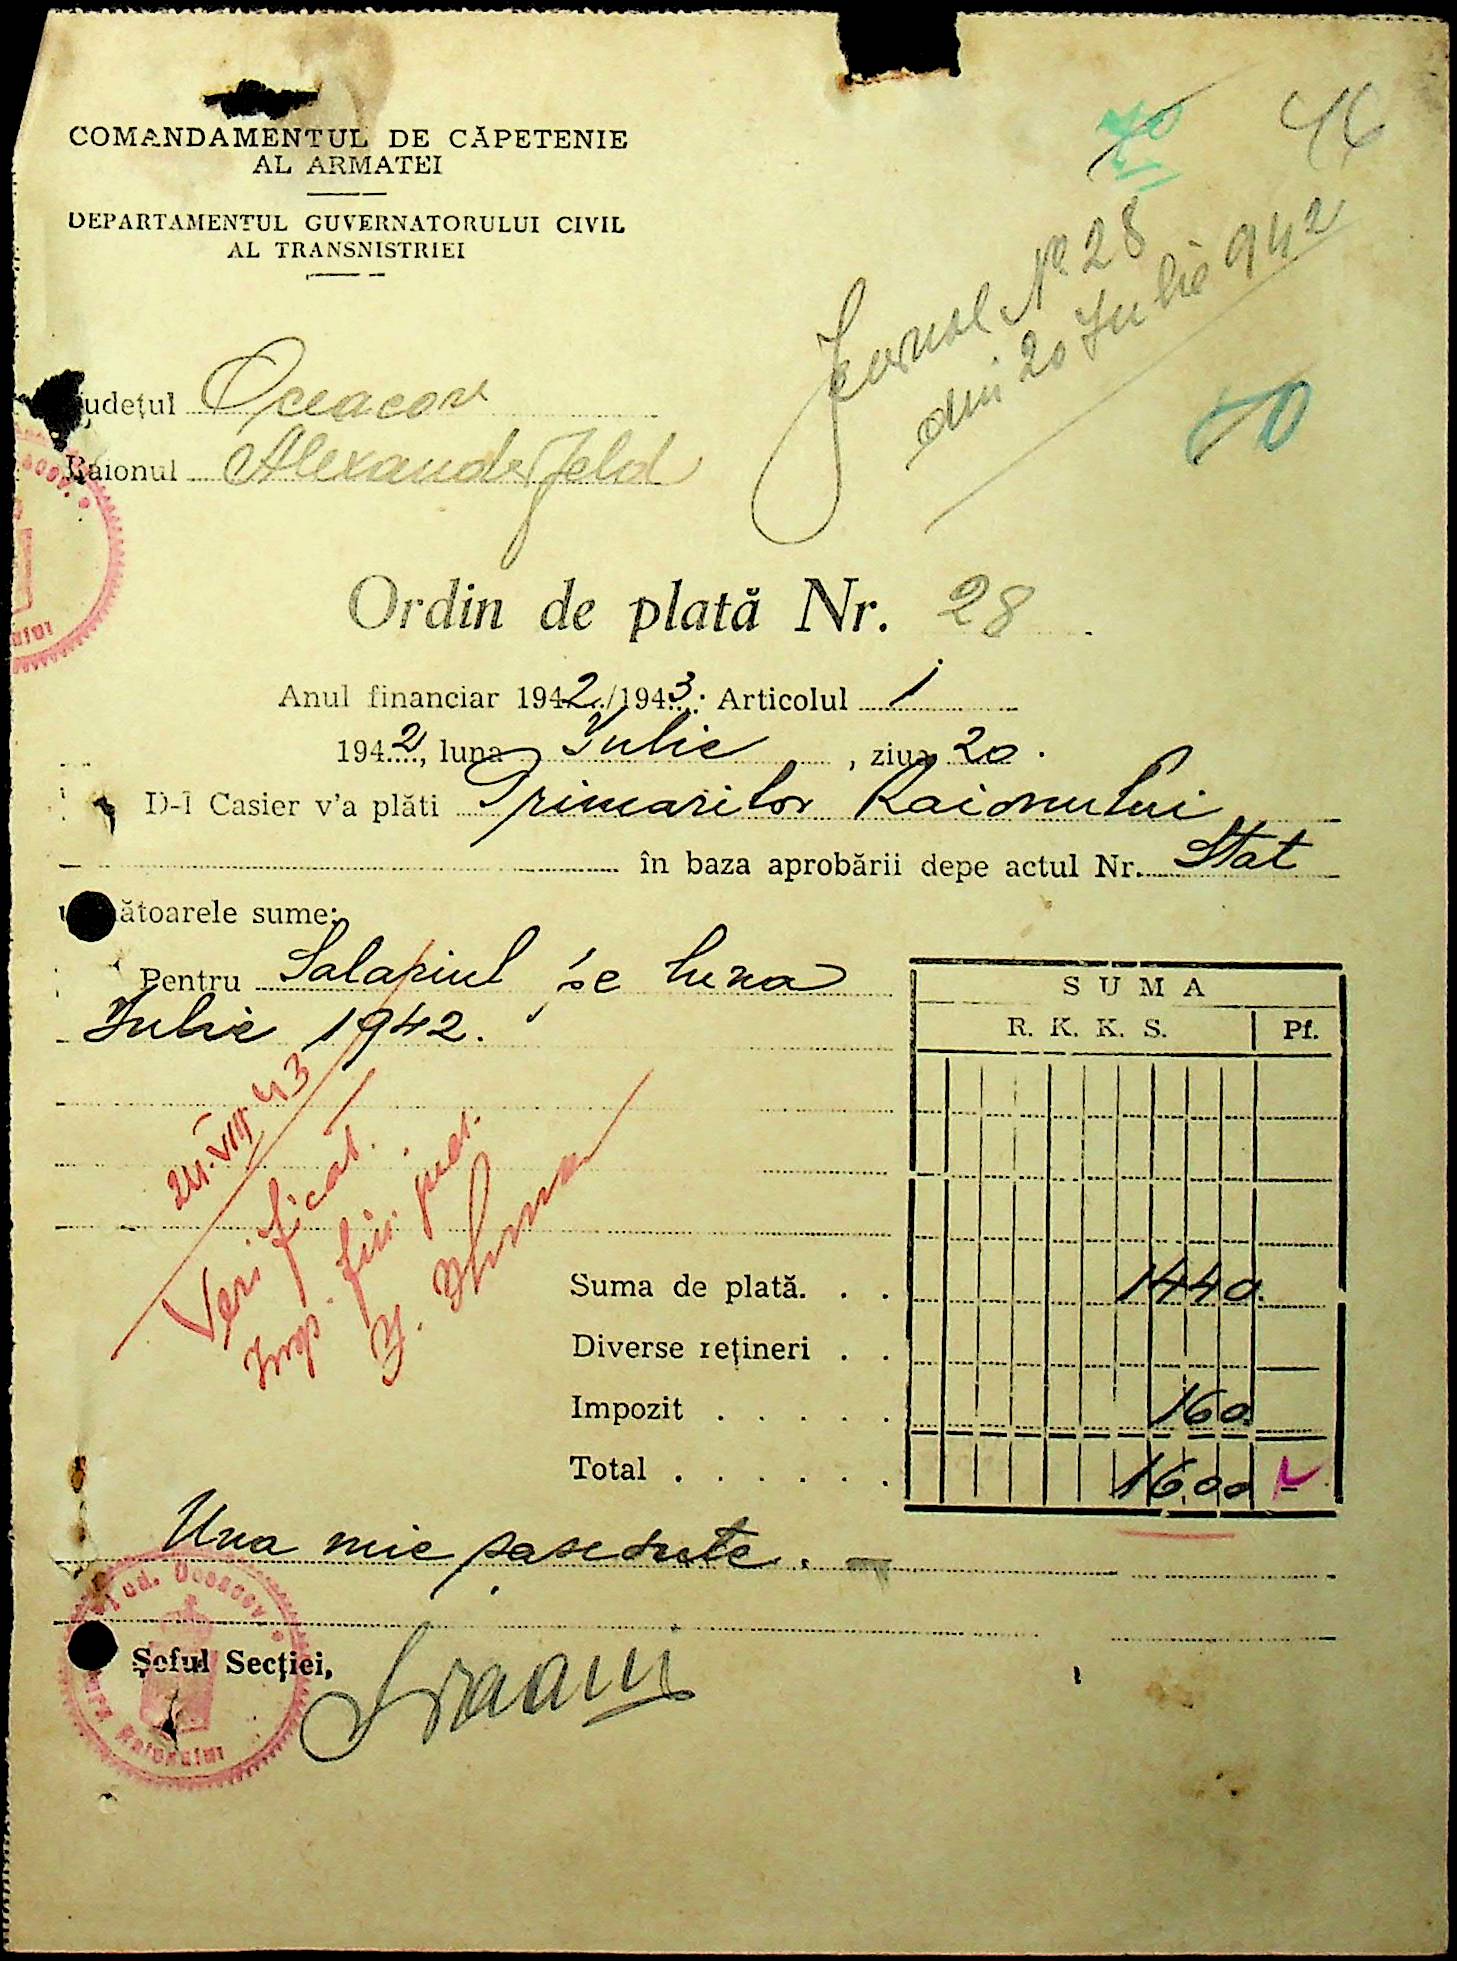 COMANDAMENTUL DE CĂPETENIE
AL ARMATEI
DEPARTAMENTUL GUVERNATORULUI CIVIL
AL TRANSNISTRIEI
70
46
Jurnal No 28
din 20 Iulie 942
70
Județul Oceacov
Raionul Alexanderfeld
Ordin de plată Nr. 28
Anul financiar 1942/1943. Articolul 1
1942, luna Iulie, ziua 20.
D-l Casier v'a plăti Primarilor Raionului
în baza aprobării depe actul Nr. Stat
ătoarele sume:
Pentru Salariul pe luna
Iulie 1942.
SUMA
R. K. K. S. Pf.
24.VIII 43
Verificat
Imp. fin.
Suma de plată. . . 1440.
Diverse rețineri . .
Impozit . . . . . 160.
Total . . . . . . 1600
Una mie șasesute.
Jud. Oceacov
Raionului
Șeful Secției,